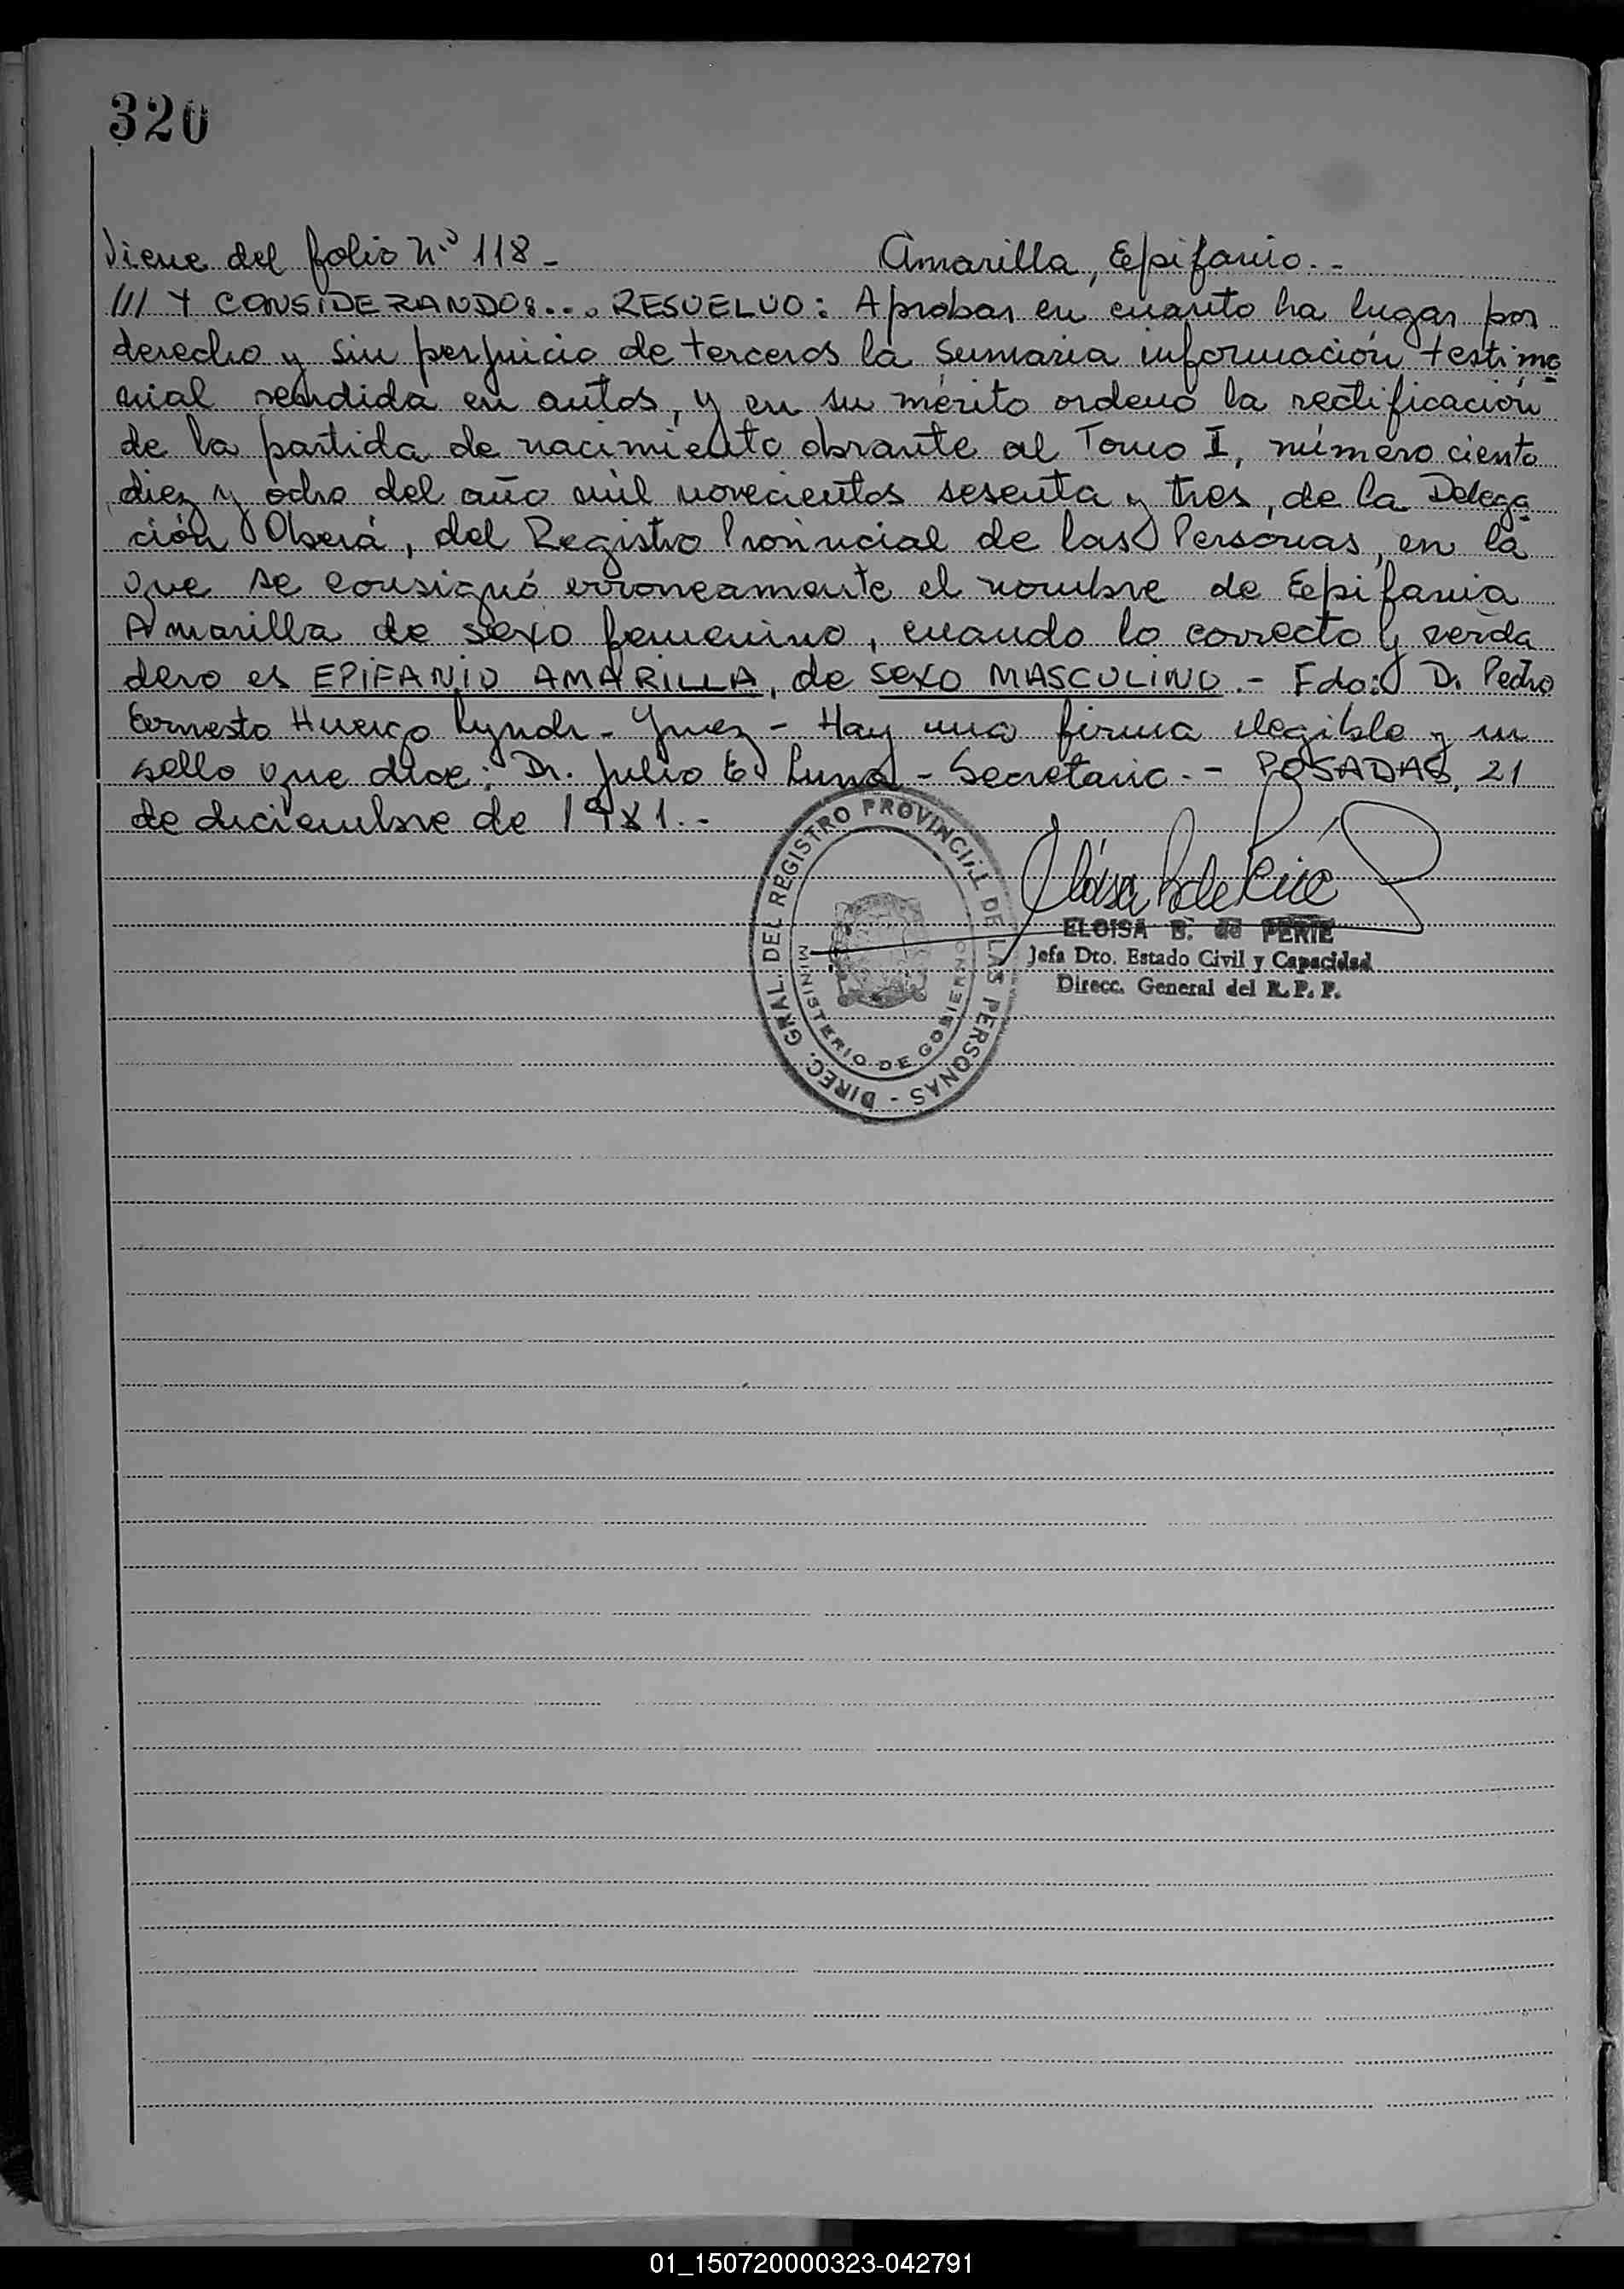 320
Viene del folio N.º 118 - Amarilla, Epifanio. -
/// Y CONSIDERANDO: ... RESUELVO: Aprobar en cuanto ha lugar por
derecho y sin perjuicio de terceros la sumaria información testimo
nial rendida en autos, y en su mérito ordeno la rectificación
de la partida de nacimiento obrante al Tomo I, número ciento
diez y ocho del año mil novecientos sesenta y tres, de la Delega
ción Oberá, del Registro Provincial de las Personas, en la
que se consignó erroneamente el nombre de Epifania
Amarilla de sexo femenino, cuando lo correcto y verda
dero es EPIFANIO AMARILLA, de sexo MASCULINO. - Fdo: D. Pedro
Ernesto Huergo - Juez - Hay una firma ilegible y un
sello que dice: Dr. Julio E. Luna - Secretario. - POSADAS, 21
de diciembre de 1981. -
DIREC. GRAL. DEL REGISTRO PROVINCIAL DE LAS PERSONAS -
MINISTERIO DE GOBIERNO
ELOISA B. de PERIE
Jefa Dto. Estado Civil y Capacidad
Direcc. General del R. P. P.
01_150720000323-042791